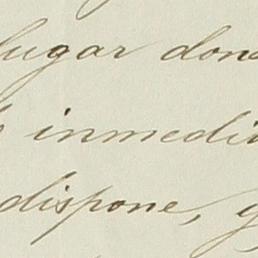 lugar don
inmedi
dispone,